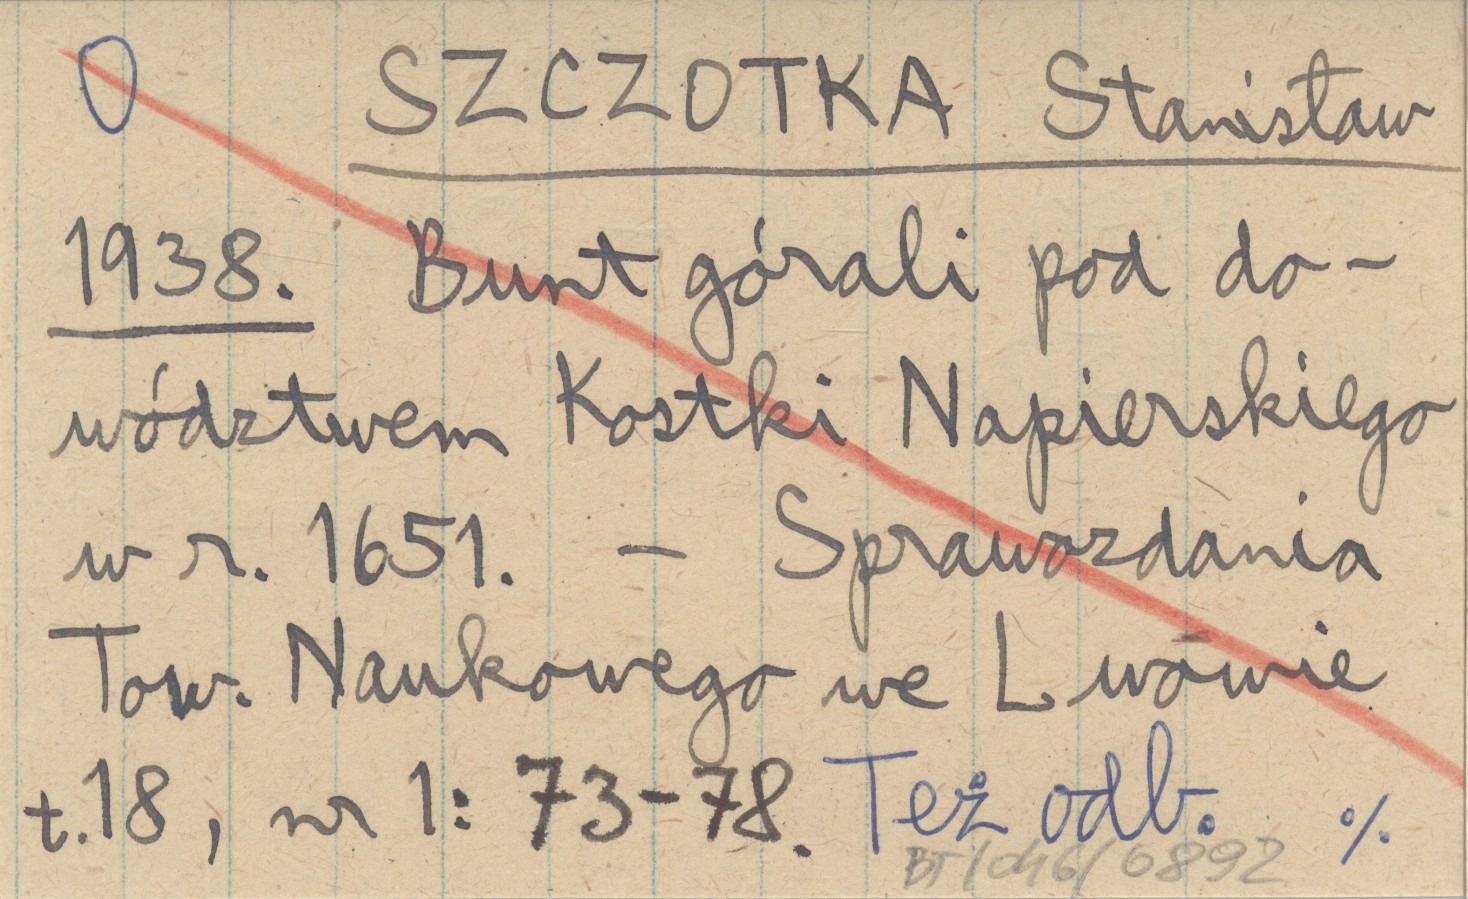 O SZCZOTKA Stanisław
1938. Bunt górali pod do-
wództwem Kostki Napierskiego
w r. 1651. – Sprawozdania
Tow. Naukowego we Lwowie
t.18, nr 1: 73-78. Też odb. %